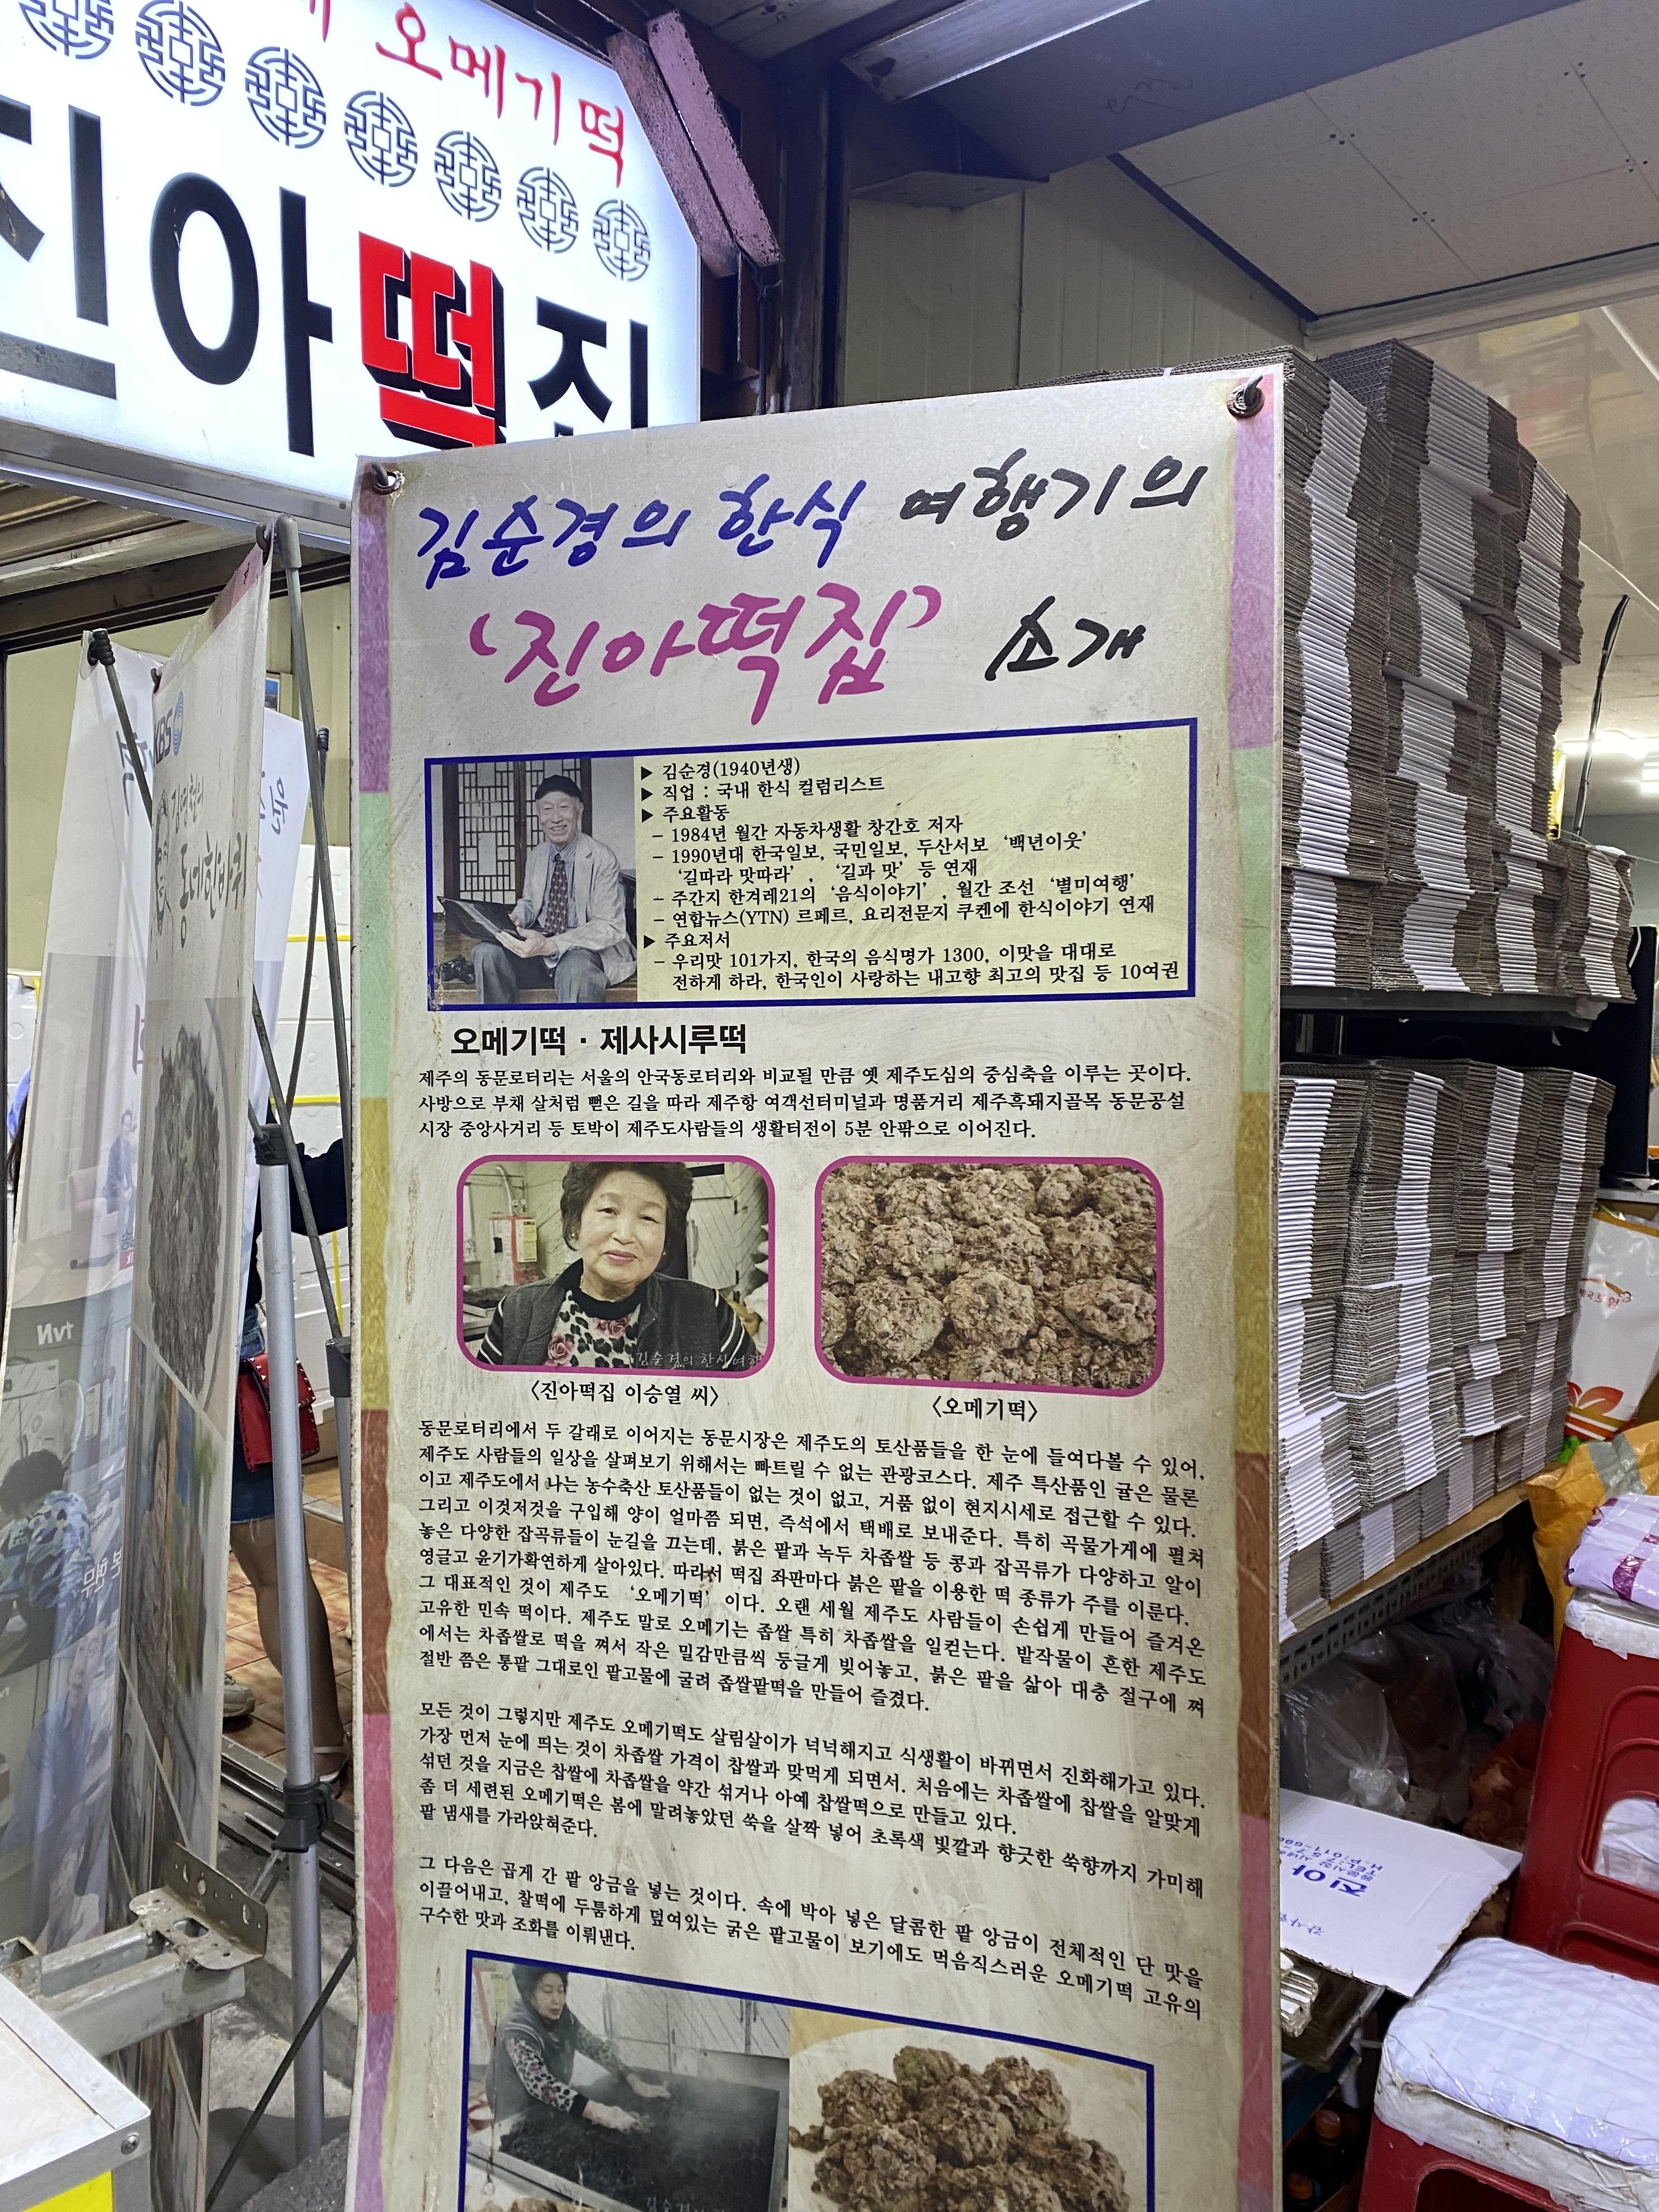 오메기떡
진아떡집
김순경의 한식 여행기의
‘진아떡집’ 소개
▶ 김순경(1940년생)
▶ 직업 : 국내 한식 컬럼리스트
▶ 주요활동
– 1984년 월간 자동차생활 창간호 저자
– 1990년대 한국일보, 국민일보, 두산서보 ‘백년이웃’
‘길따라 맛따라’ , ‘길과 맛’ 등 연재
– 주간지 한겨레21의 ‘음식이야기’ , 월간 조선 ‘별미여행’
– 연합뉴스(YTN) 르페르, 요리전문지 쿠켄에 한식이야기 연재
▶ 주요저서
– 우리맛 101가지, 한국의 음식명가 1300, 이맛을 대대로
전하게 하라, 한국인이 사랑하는 내고향 최고의 맛집 등 10여권
오메기떡 · 제사시루떡
제주의 동문로터리는 서울의 안국동로터리와 비교될 만큼 옛 제주도심의 중심축을 이루는 곳이다.
사방으로 부채 살처럼 뻗은 길을 따라 제주항 여객선터미널과 명품거리 제주흑돼지골목 동문공설
시장 중앙사거리 등 토박이 제주도사람들의 생활터전이 5분 안팎으로 이어진다.
김순경의 한식여행
〈진아떡집 이승열 씨〉
〈오메기떡〉
동문로터리에서 두 갈래로 이어지는 동문시장은 제주도의 토산품들을 한 눈에 들여다볼 수 있어,
제주도 사람들의 일상을 살펴보기 위해서는 빠트릴 수 없는 관광코스다. 제주 특산품인 귤은 물론
이고 제주도에서 나는 농수축산 토산품들이 없는 것이 없고, 거품 없이 현지시세로 접근할 수 있다.
그리고 이것저것을 구입해 양이 얼마쯤 되면, 즉석에서 택배로 보내준다. 특히 곡물가게에 펼쳐
놓은 다양한 잡곡류들이 눈길을 끄는데, 붉은 팥과 녹두 차좁쌀 등 콩과 잡곡류가 다양하고 알이
영글고 윤기가확연하게 살아있다. 따라서 떡집 좌판마다 붉은 팥을 이용한 떡 종류가 주를 이룬다.
그 대표적인 것이 제주도 ‘오메기떡’ 이다. 오랜 세월 제주도 사람들이 손쉽게 만들어 즐겨온
고유한 민속 떡이다. 제주도 말로 오메기는 좁쌀 특히 차좁쌀을 일컫는다. 밭작물이 흔한 제주도
에서는 차좁쌀로 떡을 쪄서 작은 밀감만큼씩 둥글게 빚어놓고, 붉은 팥을 삶아 대충 절구에 쪄
절반 쯤은 통팥 그대로인 팥고물에 굴려 좁쌀팥떡을 만들어 즐겼다.
모든 것이 그렇지만 제주도 오메기떡도 살림살이가 넉넉해지고 식생활이 바뀌면서 진화해가고 있다.
가장 먼저 눈에 띄는 것이 차좁쌀 가격이 찹쌀과 맞먹게 되면서. 처음에는 차좁쌀에 찹쌀을 알맞게
섞던 것을 지금은 찹쌀에 차좁쌀을 약간 섞거나 아예 찹쌀떡으로 만들고 있다.
좀 더 세련된 오메기떡은 봄에 말려놓았던 쑥을 살짝 넣어 초록색 빛깔과 향긋한 쑥향까지 가미해
팥 냄새를 가라앉혀준다.
그 다음은 곱게 간 팥 앙금을 넣는 것이다. 속에 박아 넣은 달콤한 팥 앙금이 전체적인 단 맛을
이끌어내고, 찰떡에 두툼하게 덮여있는 굵은 팥고물이 보기에도 먹음직스러운 오메기떡 고유의
구수한 맛과 조화를 이뤄낸다.
KBS
tvN
진아